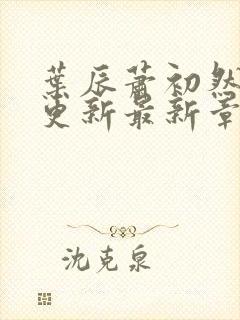 葉辰蕭初然
更新最新章
沈克泉